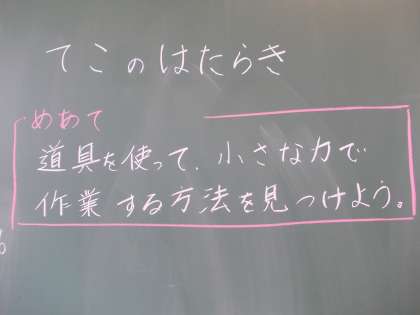 てこのはたらき
めあて
道具を使って、小さな力で
作業する方法を見つけよう。